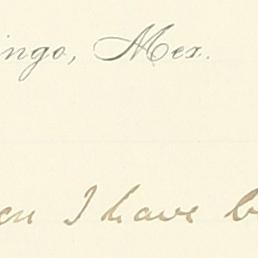 ingo, Mex.
en I have b